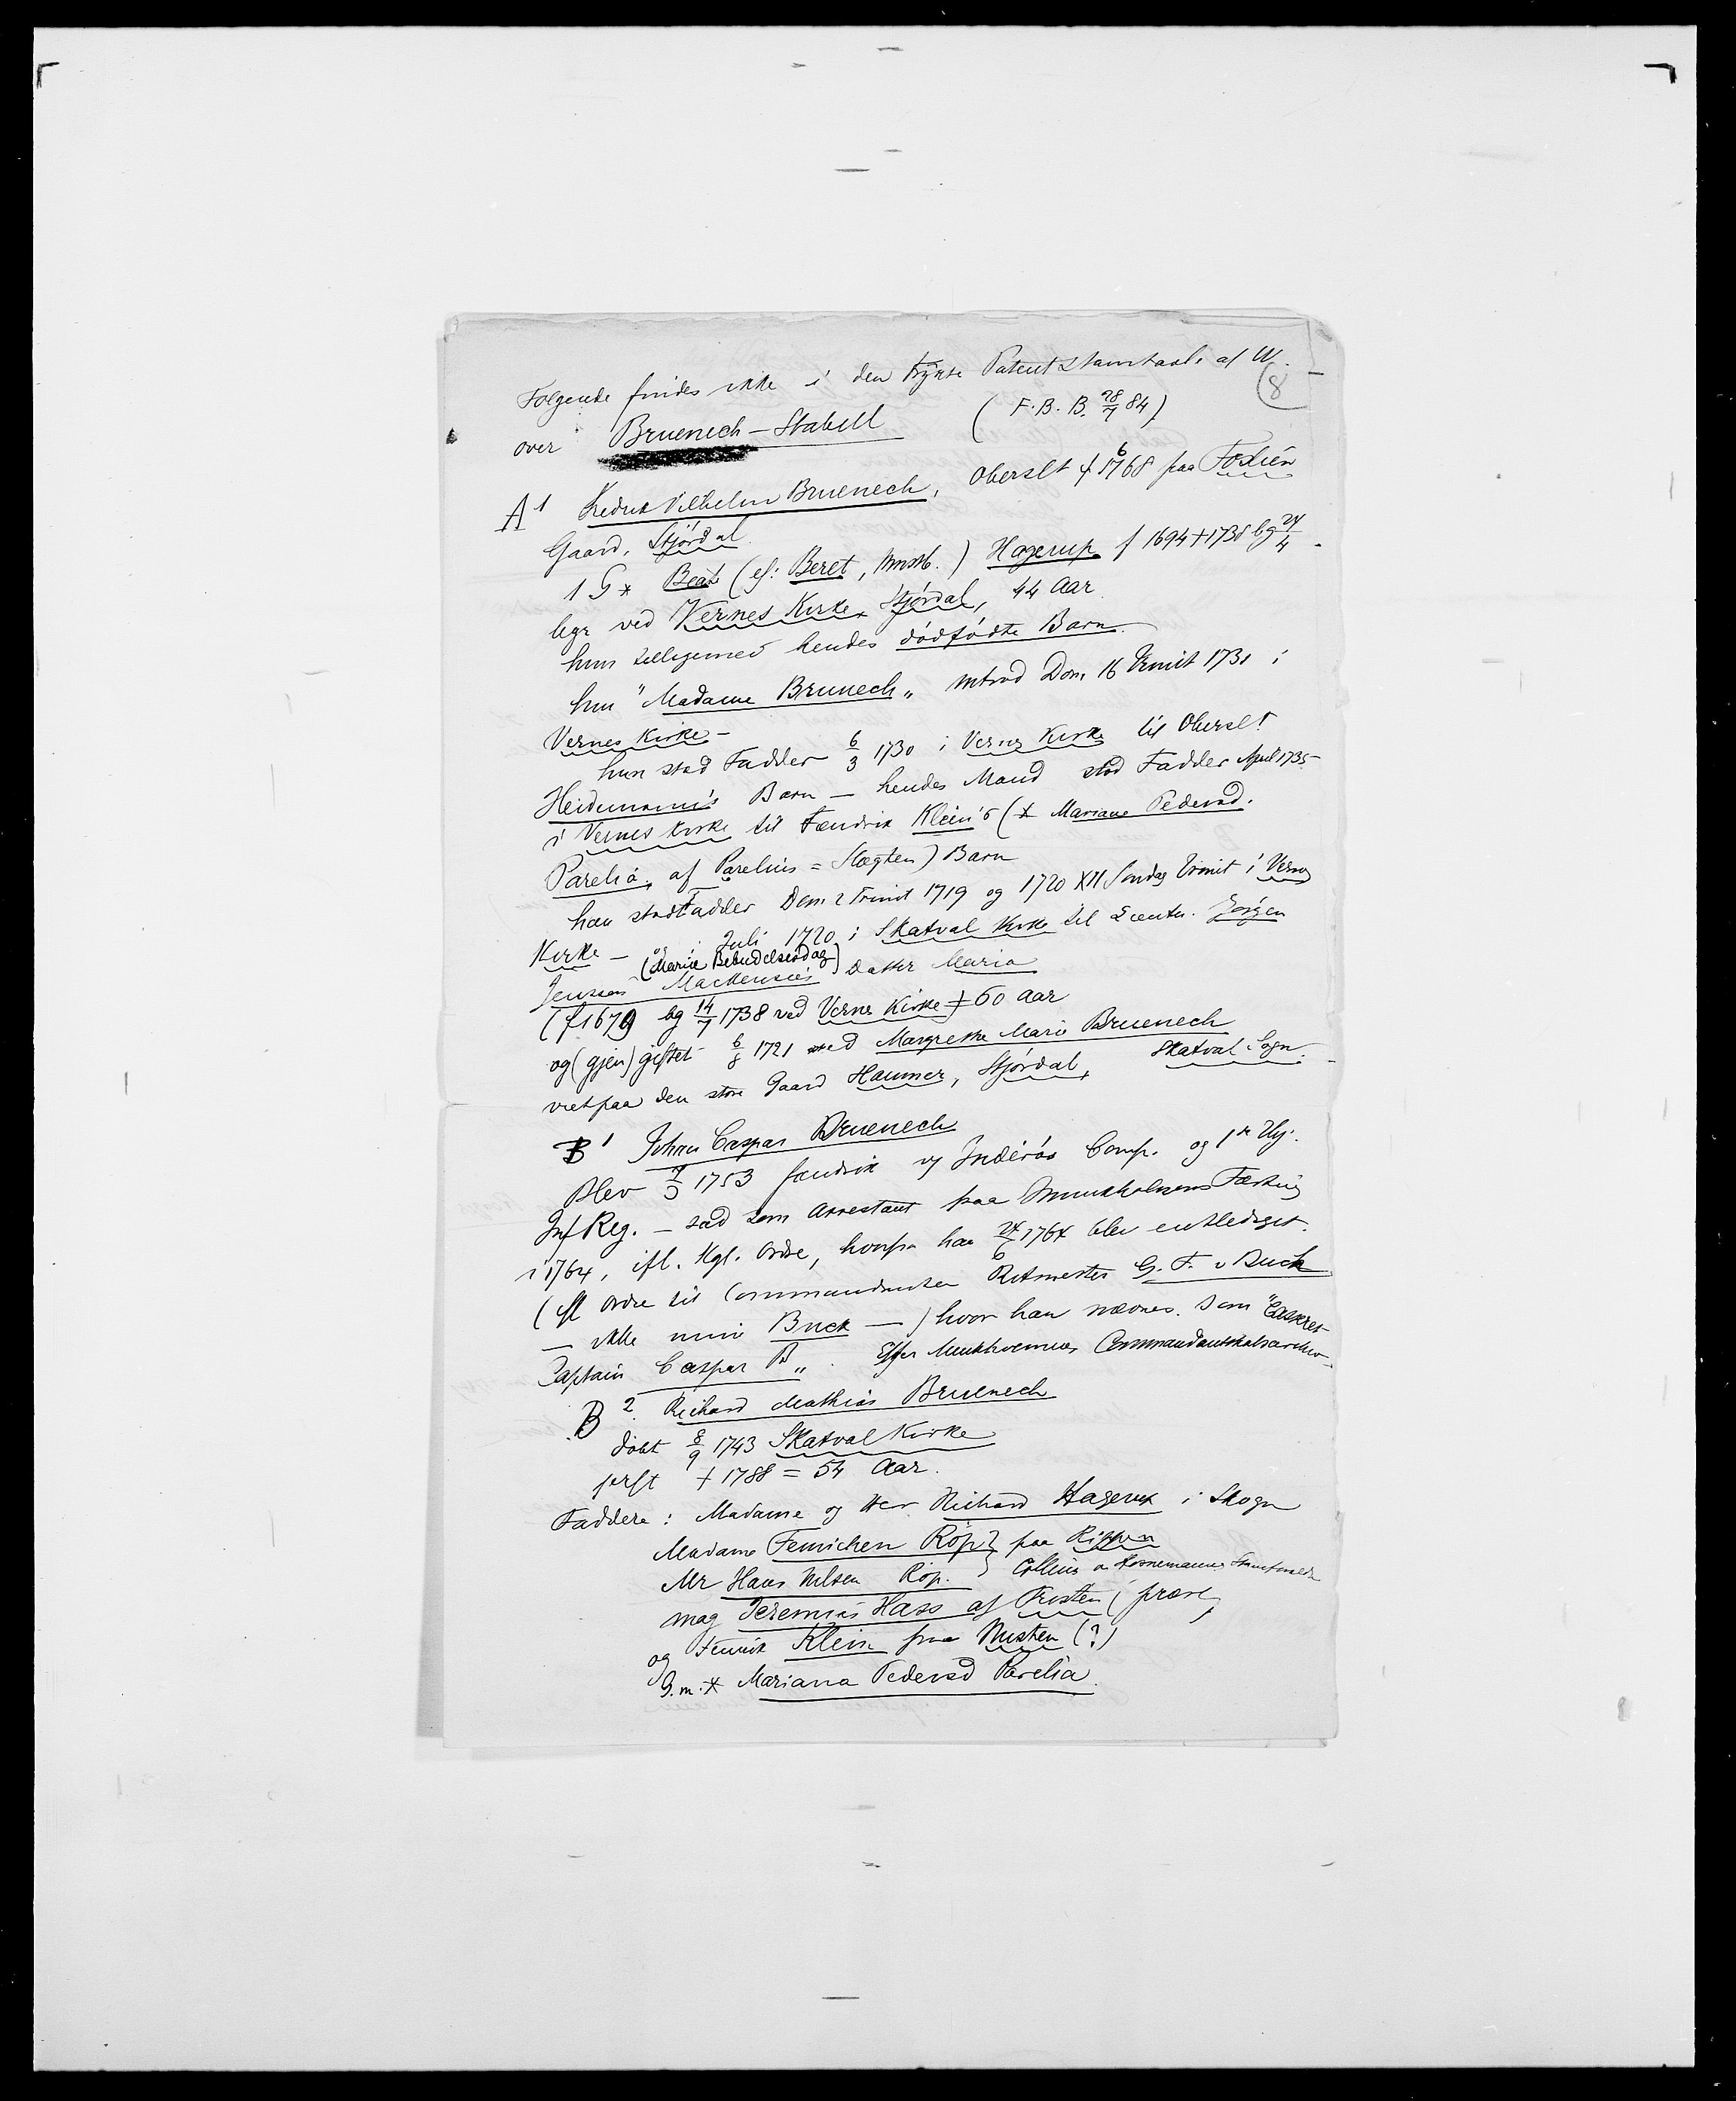 Følgende findes ikke i den trykte Patent Stamtavle af W.
(8
over Bruenech – Stabell (F. B. B. 28/7 84)
A 1 Fredrik Vilhelm Bruenech, Oberslt † 1768 paa
6
Gaard, Stjørdal.
1 G * Beate (ef: Beret, ) Hagerup f 1694 † 1738 bg 24/4
begr ved Vernes Kirke, Stjørdal, 44 Aar
hun tilligemed hendes dødfødte Barn.
hun "Madame Bruenech" introd Dom 16 Trinit 1731 i
Vernes Kirke –
hun stod Fadder 6/3 1730 i Vernes Kirke til Oberslt
Heidemann's Barn — hendes Mand stod Fadder April 1735
i Vernes Kirke til Fændrik Klein's (* Mariane Pedersd.
Parelia, af Parelius = Slægten) Barn
han stod Fadder Dom 2 Trinit 1719 og 1720 XII Søndag Trinit i Vernes
Kirke – og i Juli 1720 i Skatval Kirke til Lieutn. Jørgen
(Mariæ Bebudelsesdag)
Jenssen Mackensie's Datter Maria
(f 1679 bg 14/7 1738 ved Vernes Kirke † 60 Aar
og (gjen) giftet 6/8 1721 med Margrethe Marie Bruenech
paa den store Gaard Hammer, Stjørdal, Skatval Sogn.
B 1 Johan Caspar Bruenech
Blev 1753 fændrik v Inderøs Comp. og 1ste
Inf Reg. – sad som Arrestant paa Munkholmens Fæstning
i 1764, ifl. Kgl. Ordre, hvorfra han 24/6 1764 blev entlediget.
(ifl Ordre til Commandanten Ritmester G. F. v Buck
— ikke Buck —) hvor han nævnes som "
Captain Caspar B". Efter Munkholmens Commandantskabsarchiv –
B 2. Richard Mathias Bruenech
døbt 8/9 1743 Skatval Kirke
† 1788 = 54 Aar.
Faddere: Madame og Herr Richard Hagerup i Skogn
Madame Femichen Röp } paa
Mr Hans Nilsen Röp. } Collins og Hornemanns Stamtavle
mag Jeremias Hass af (præst)
og Fendrik Klein fra (?)
G. m. * Mariana Pedersd Parelia.